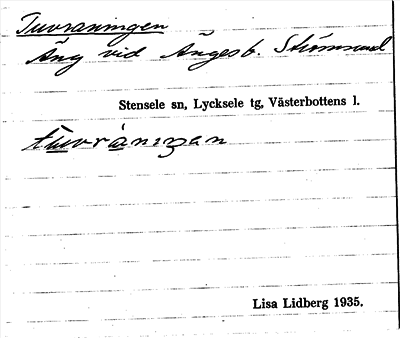 Tuvraningen
Äng vid Ängesb. Strömsund
Stensele sn, Lycksele tg, Västerbottens l.
Lisa Lidberg 1935.